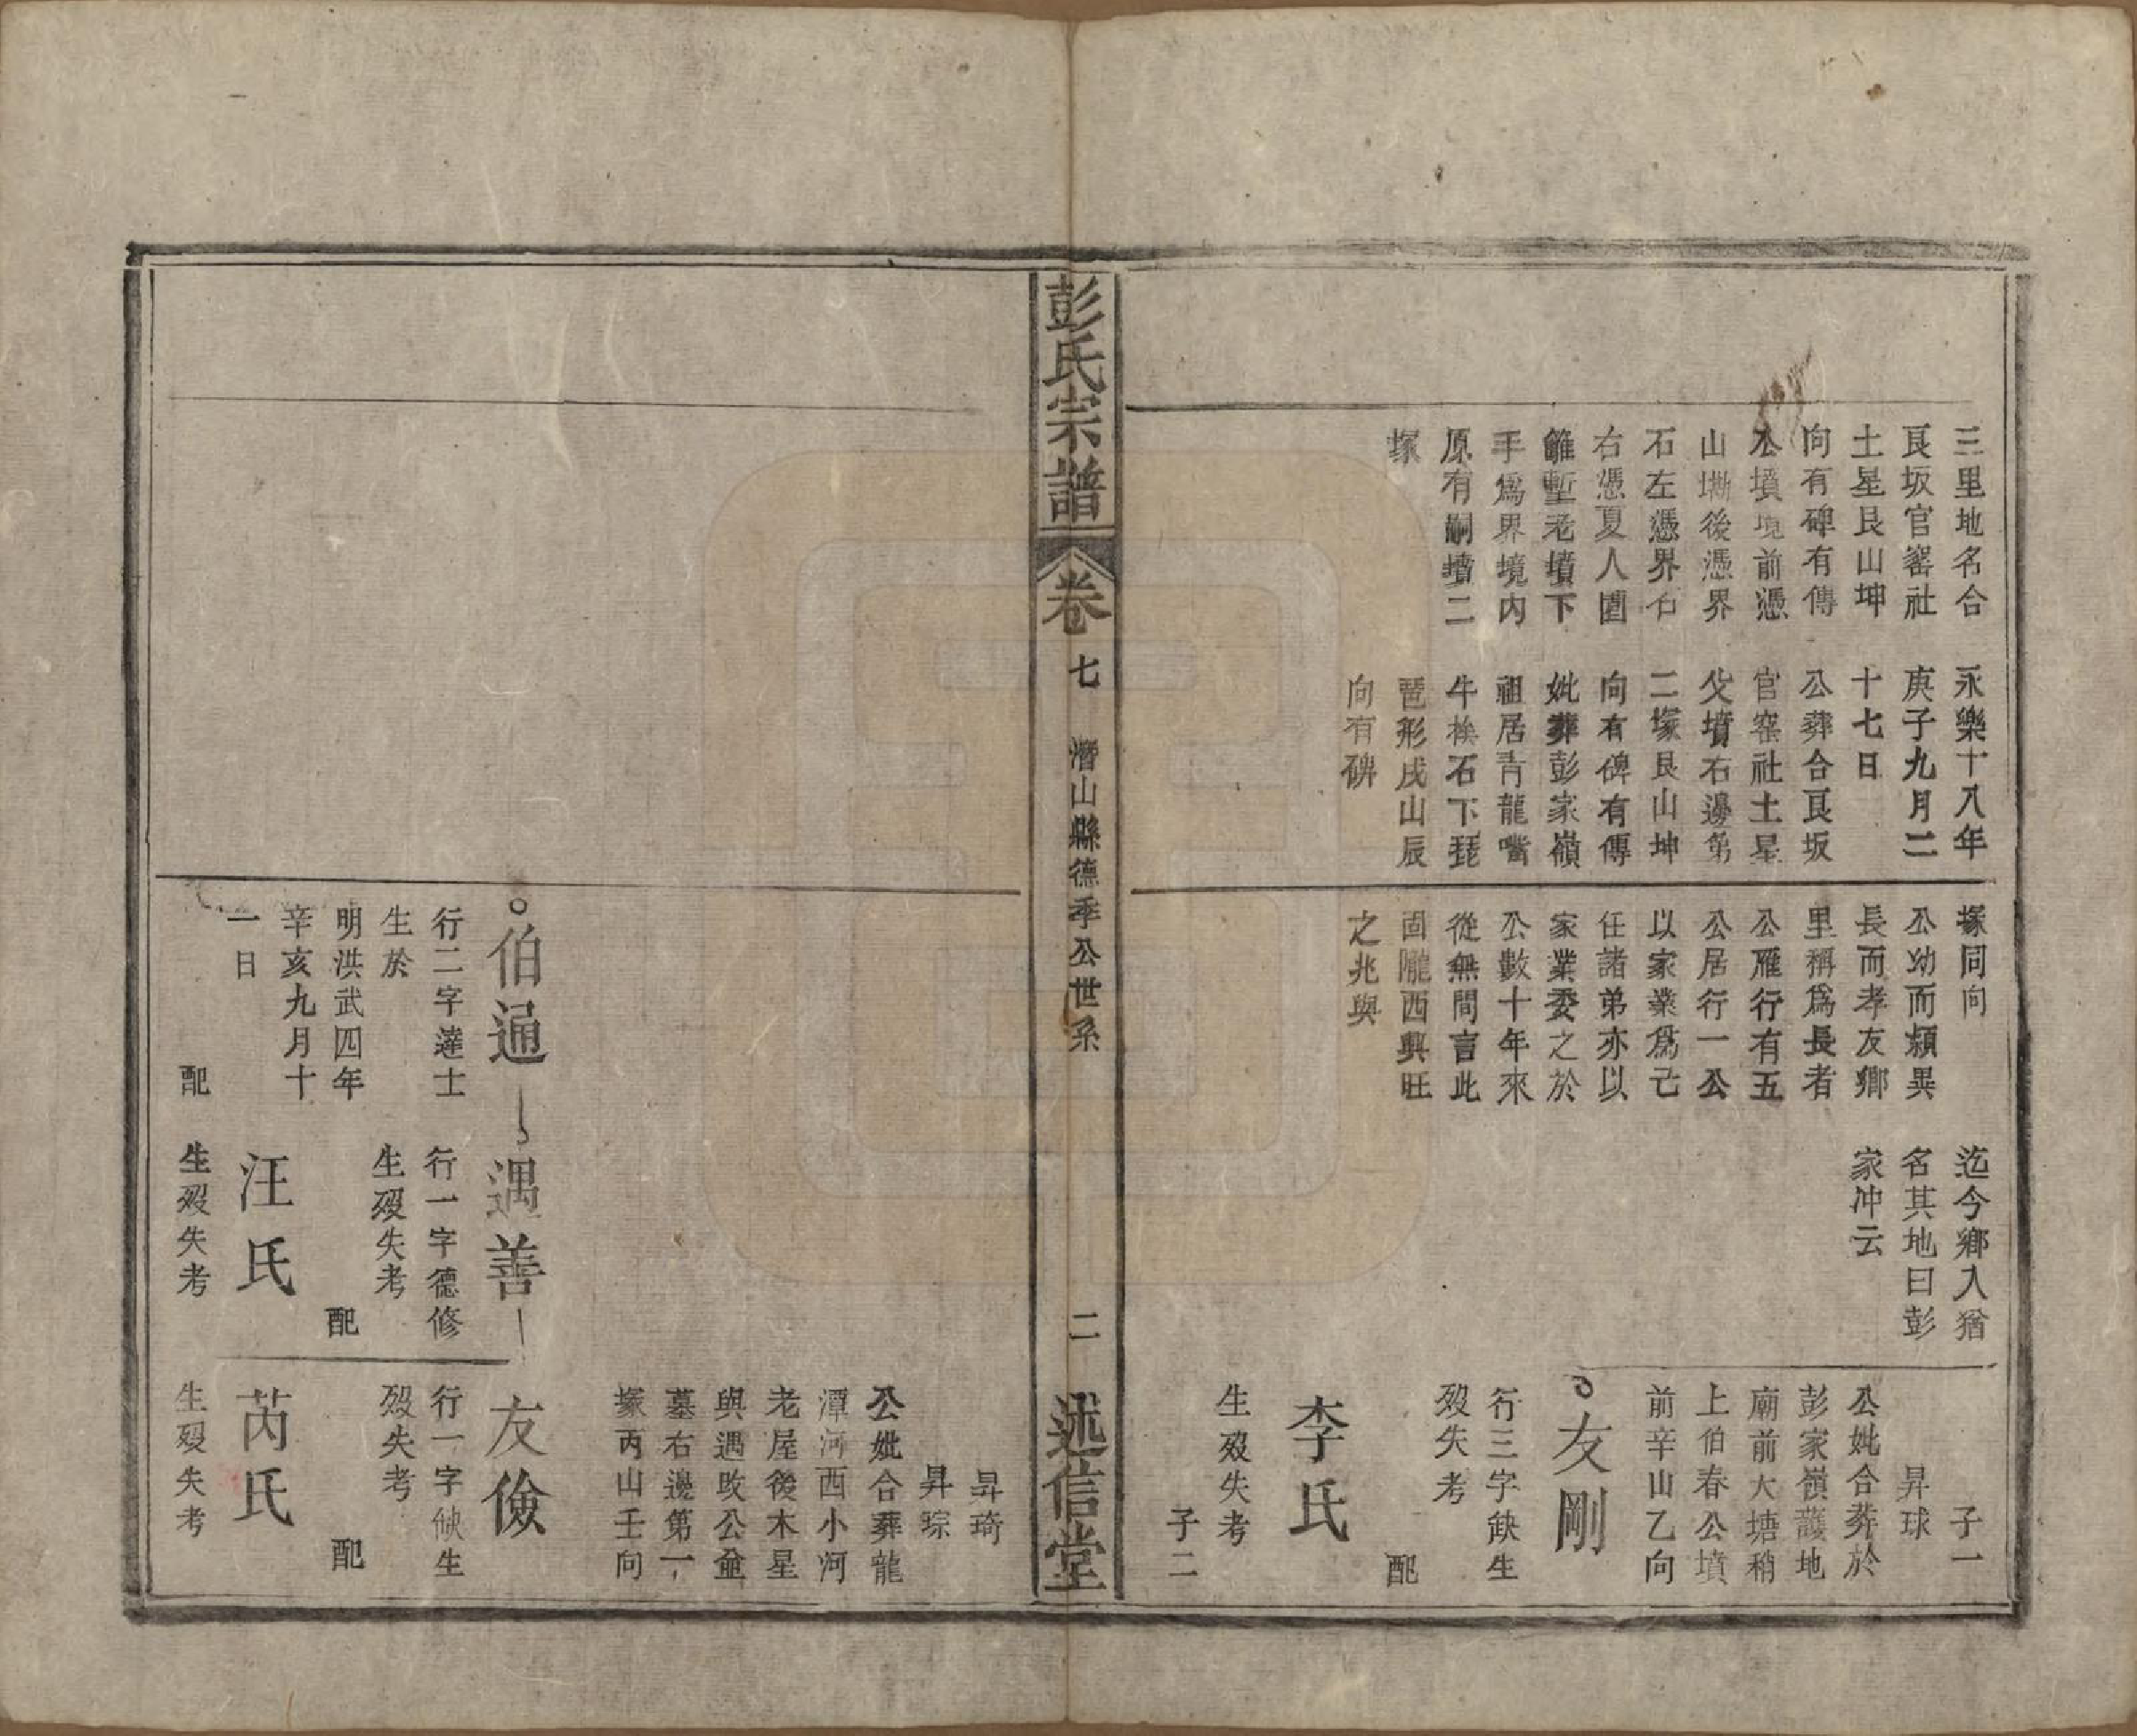 三里地名合
艮坂官窰社
土星艮山坤
向有碑有傳
公墳境前憑
山塝後憑界
石左憑界石
右憑夏人園
籬塹老墳下
手爲界境内
原有嗣墳二
塚
永樂十八年
庚子九月二
十七日
公葬合艮坂
官窑社土星
父墳右邊第
二塚艮山坤
向有碑有傳
妣葬彭家嶺
祖居青龍嘴
牛挨石下琵
琶形戌山辰
向有碑
塚同向
公幼而頴異
長而孝友鄉
里稱爲長者
公雁行有五
公居行一公
以家業爲己
任諸弟亦以
家業委之於
公數十年來
從無間言此
固隴西興旺
之兆與
迄今鄉人猶
名其地曰彭
家冲云
子一
昇球
公妣合葬於
彭家嶺護地
廟前大塘稍
上伯春公墳
前辛山乙向
友剛
行三字缺生
殁失考
配
李氏
生殁失考
子二
彭氏宗譜
卷七
潛山縣德季公世系
二
述信堂
昇琦
昇琮
公妣合葬龍
潭河西小河
老屋後木星
與遇政公並
墓右邊第一
塚丙山壬向
伯通
行二字達士
生於
明洪武四年
辛亥九月十
一日
配
汪氏
生殁失考
遇善
行一字德修
生殁失考
配
芮氏
生殁失考
友儉
行一字缺生
殁失考
配